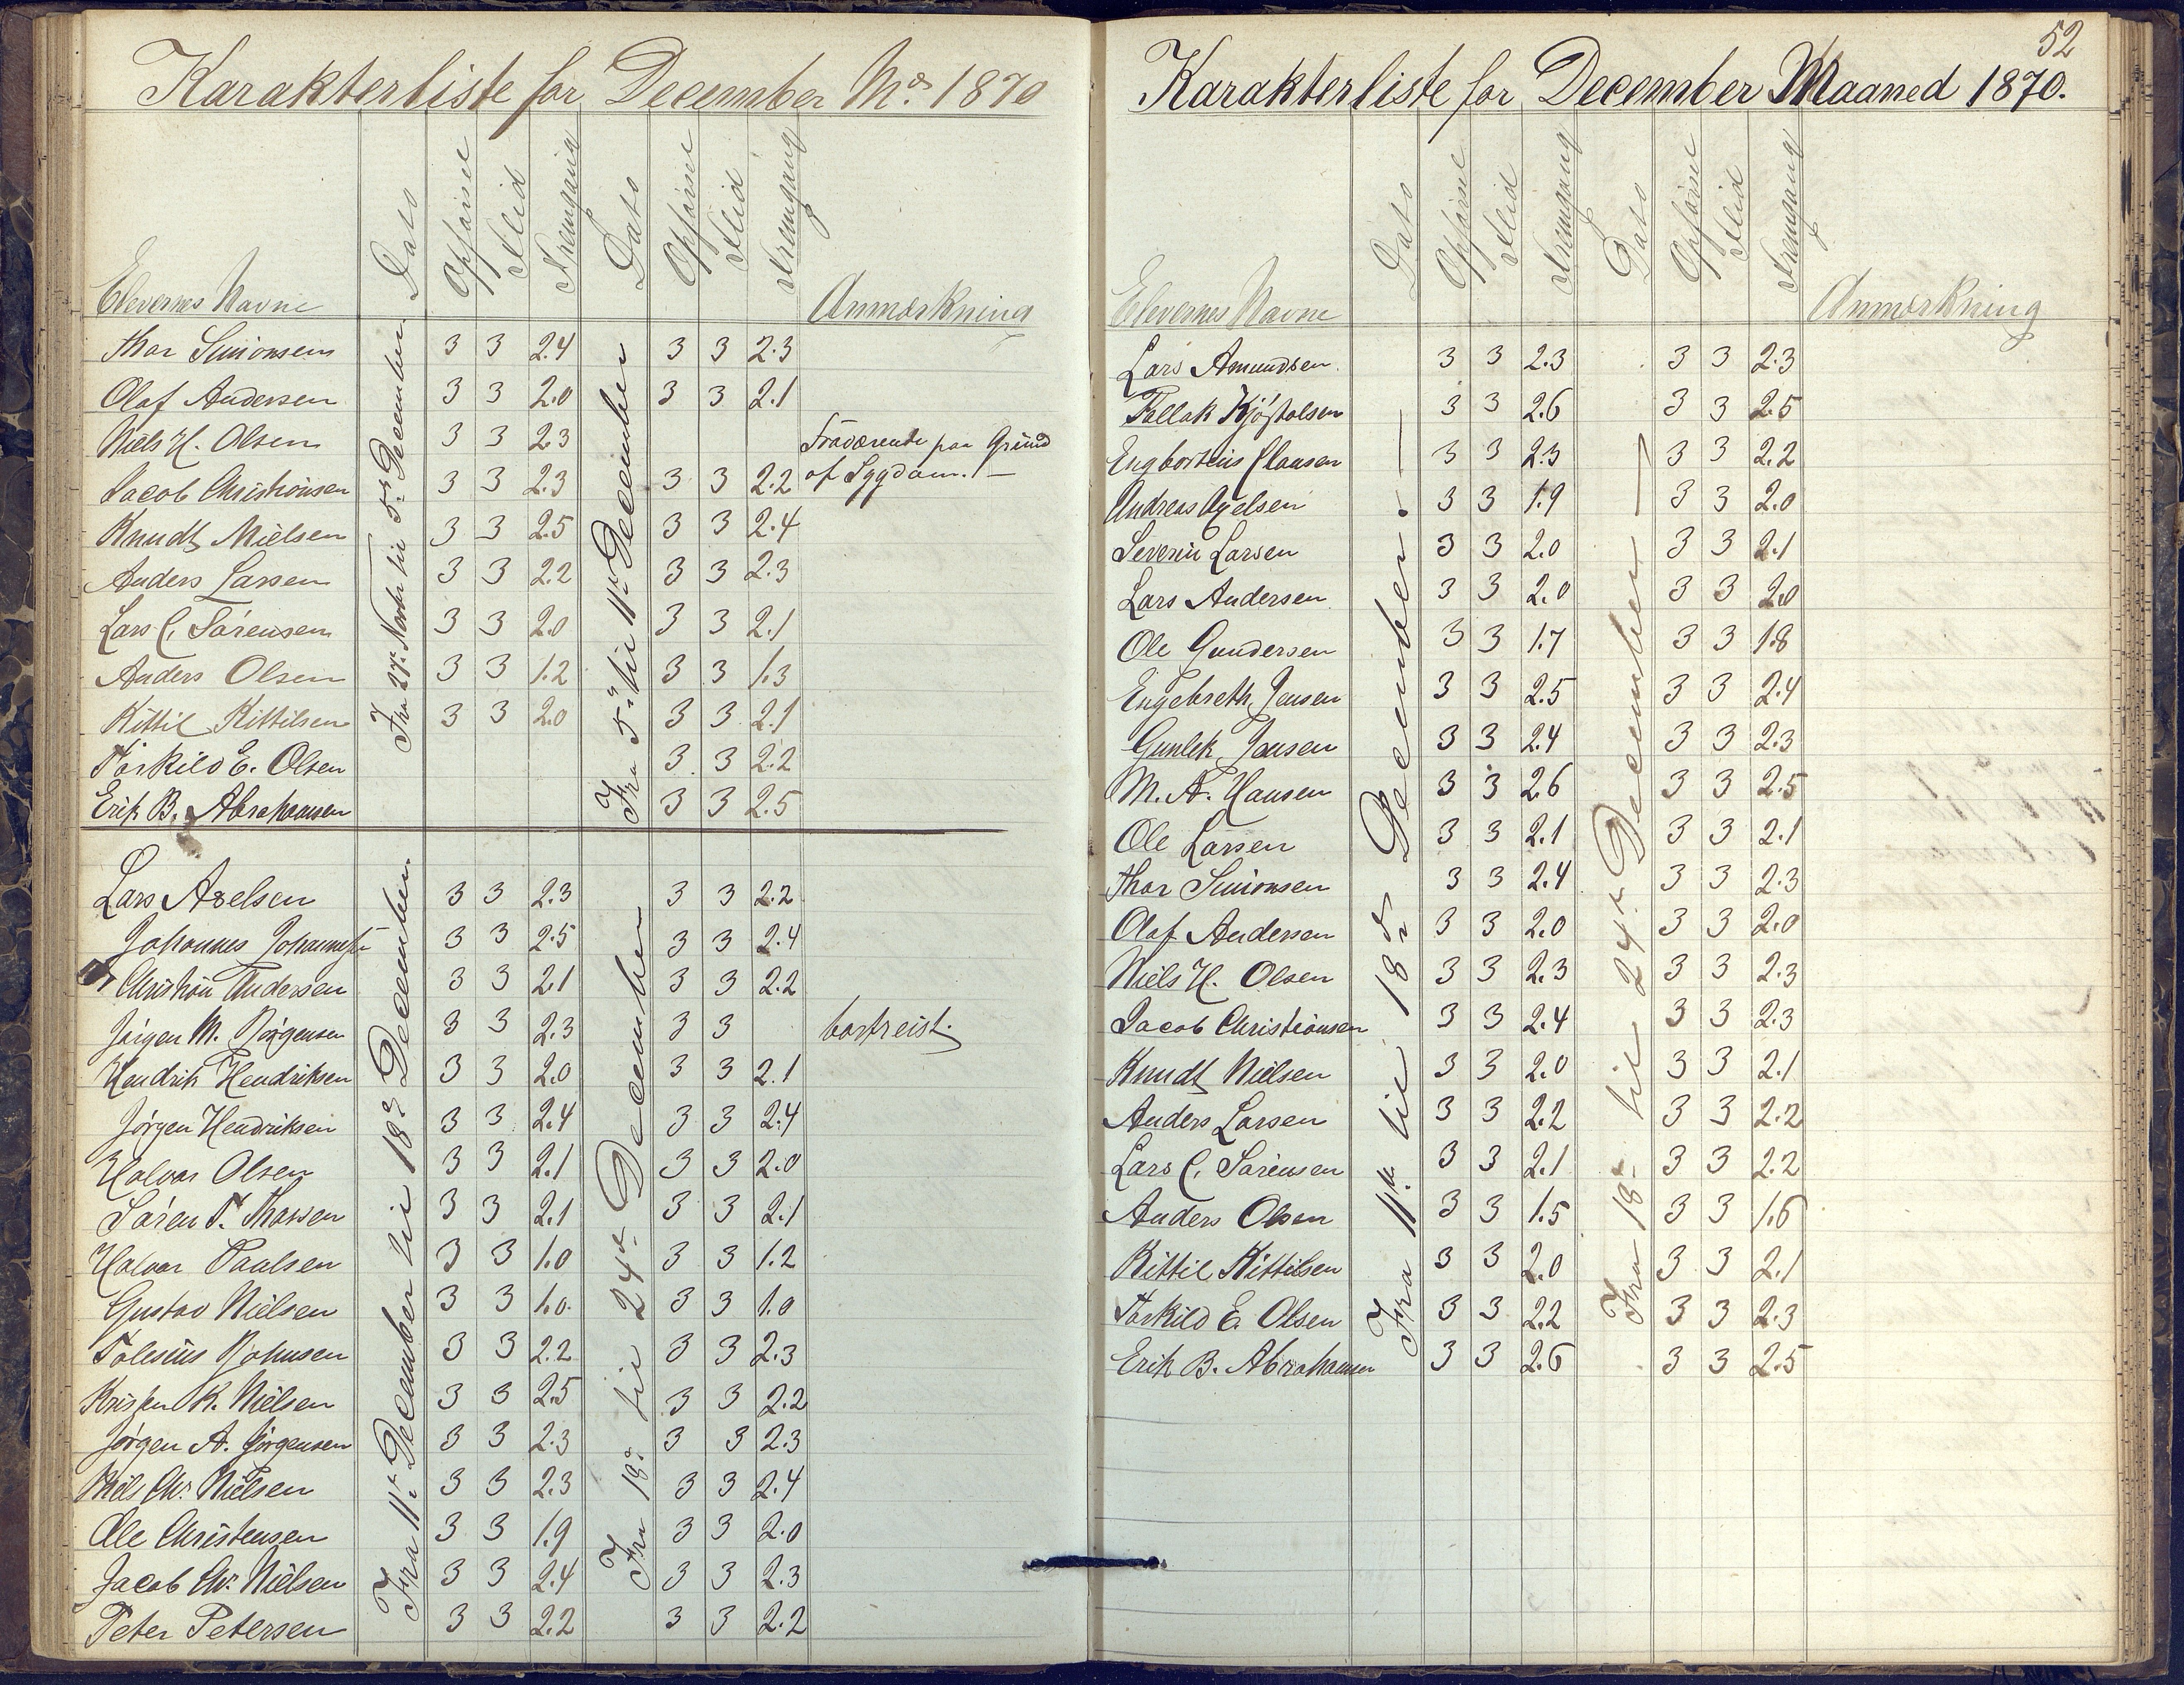 Karakterliste for December Md. 1870
Elevernes Navne Dato Opførsel Flid Fremgang Dato Opførsel Flid Fremgang Anmærkning
Fra 27de Novbr til 5te December
Fra 5te til 11te December
Thor Simonsen 3 3 2.4 3 3 2.3
Olaf Andersen 3 3 2.0 3 3 2.1
Niels H. Olsen 3 3 2.3 Fraværende paa Grund
Jacob Christiansen 3 3 2.3 3 3 2.2 af Sygdom.
Knudt Nielsen 3 3 2.5 3 3 2.4
Anders Larsen 3 3 2.2 3 3 2.3
Lars C. Sørensen 3 3 2.0 3 3 2.1
Anders Olsen 3 3 1.2 3 3 1.3
Kittil Kittilsen 3 3 2.0 3 3 2.1
Torkild E. Olsen 3 3 2.2
Erik B. Abrahamsen 3 3 2.5
Fra 11te December til 18de December
Fra 18de til 24de December
Lars Axelsen 3 3 2.3 3 3 2.2
Johannes Johannesen 3 3 2.5 3 3 2.4
Christian Andersen 3 3 2.1 3 3 2.2
Jørgen M. Jørgensen 3 3 2.3 3 3 bortreist.
Hendrik Hendriksen 3 3 2.0 3 3 2.1
Jørgen Hendriksen 3 3 2.4 3 3 2.4
Halvor Olsen 3 3 2.1 3 3 2.0
Søren T. Thorsen 3 3 2.1 3 3 2.1
Halvor Paulsen 3 3 1.0 3 3 1.2
Gustav Nielsen 3 3 1.0. 3 3 1.0
Tolesius Johnsen 3 3 2.2 3 3 2.3
Kristen K. Nielsen 3 3 2.5 3 3 2.2
Jørgen A. Jørgensen 3 3 2.3 3 3 2.3
Niels Chr. Nielsen 3 3 2.3 3 3 2.4
Ole Christensen 3 3 1.9 3 3 2.0
Jacob Chr. Nielsen 3 3 2.4 3 3 2.3
Peter Petersen 3 3 2.2 3 3 2.2
52
Karakterliste for December Maaned 1870.
Elevernes Navne Dato Opførsel Flid Fremgang Dato Opførsel Flid Fremgang Anmærkning
Fra 11te til 18de December
Fra 18de til 24de December
Lars Amundsen 3 3 2.3 3 3 2.3
Tellak Kjøstolsen 3 3 2.6 3 3 2.5
Clausen 3 3 2.3 3 3 2.2
Andreas Axelsen 3 3 1.9 3 3 2.0
Severin Larsen 3 3 2.0 3 3 2.1
Lars Andersen 3 3 2.0 3 3 2.0
Ole Gundersen 3 3 1.7 3 3 1.8
Engebreth Jensen 3 3 2.5 3 3 2.4
Gunlek Jensen 3 3 2.4 3 3 2.3
M. A. Hansen 3 3 2.6 3 3 2.5
Ole Larsen 3 3 2.1 3 3 2.1
Thor Simonsen 3 3 2.4 3 3 2.3
Olaf Andersen 3 3 2.0 3 3 2.0
Niels H. Olsen 3 3 2.3 3 3 2.3
Jacob Christiansen 3 3 2.4 3 3 2.3
Knudt Nielsen 3 3 2.0 3 3 2.1
Anders Larsen 3 3 2.2 3 3 2.2
Lars C. Sørensen 3 3 2.1 3 3 2.2
Anders Olsen 3 3 1.5 3 3 1.6
Kittil Kittilsen 3 3 2.0 3 3 2.1
Torkild E. Olsen 3 3 2.2 3 3 2.3
Erik B. Abrahamsen 3 3 2.6 3 3 2.5